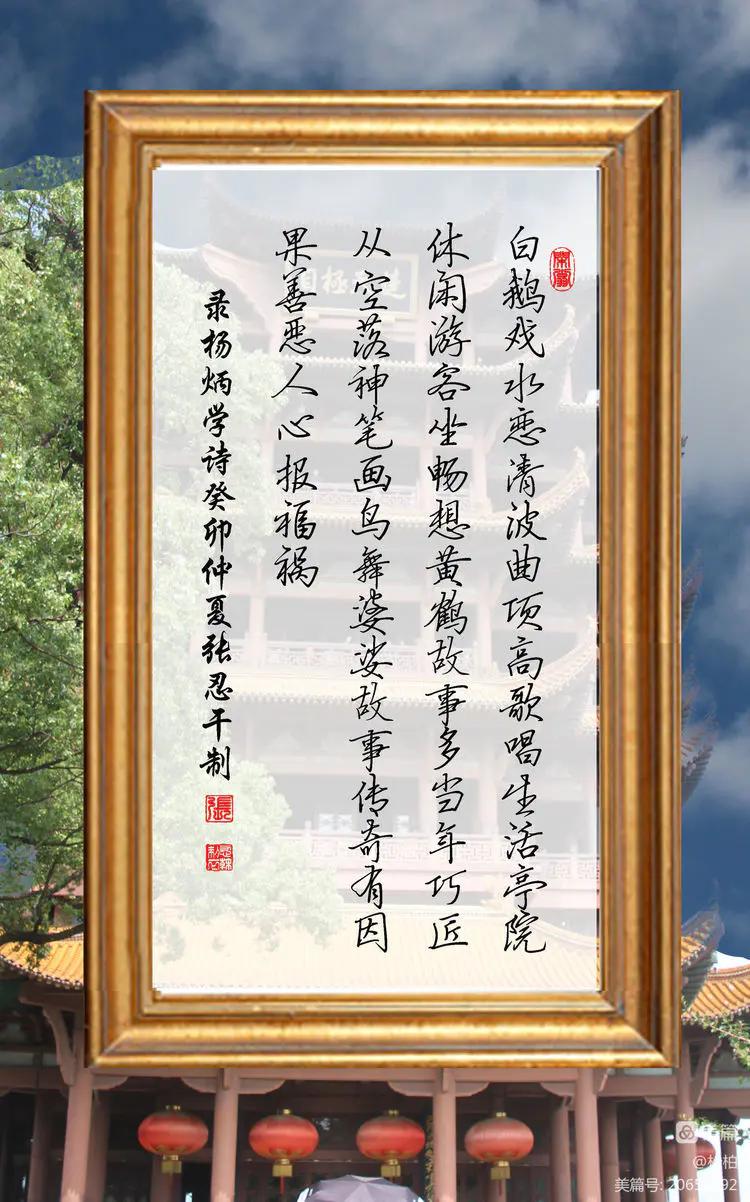 白鹅戏水恋清波曲项高歌唱生活亭院
休闲游客坐畅想黄鹤故事多当年巧匠
从空落神笔画鸟舞婆娑故事传奇有因
果善恶人心报福祸
录杨炳学诗癸卯仲夏张忍干制
張
美篇
美篇号: